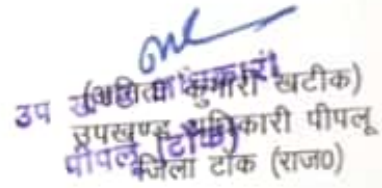 (अनिता कुमारी खटीक)
उपखण्ड अधिकारी पीपलू
जिला टोंक (राज0)
उप खण्ड अधिकारी
पीपलू (टोंक)